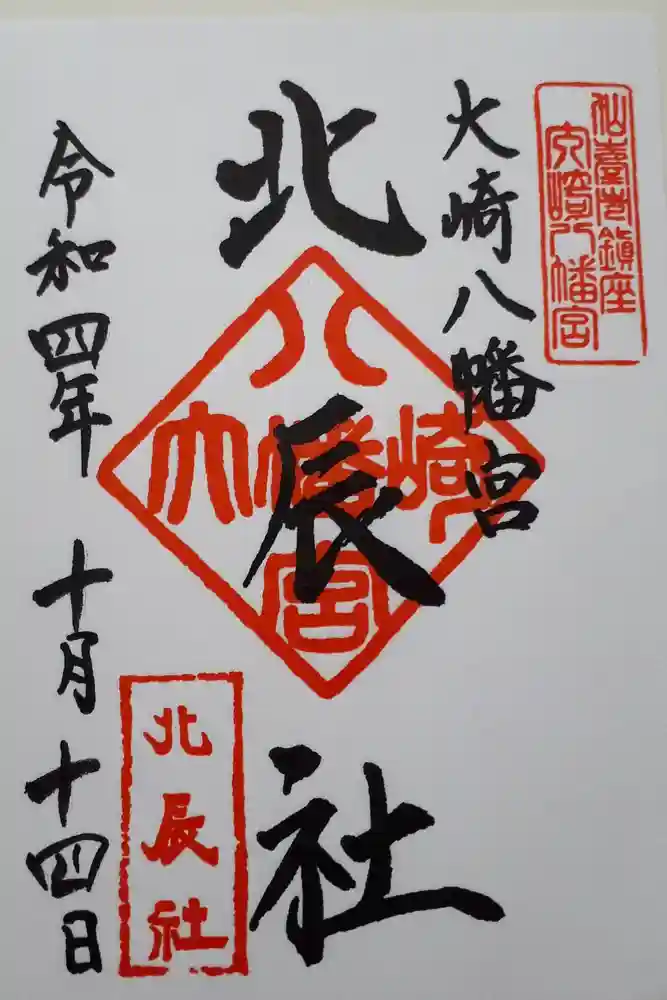 仙臺市鎮座
大崎八幡宮
大崎八幡宮
北辰社
大崎八幡宮
北辰社
令和四年十月十四日